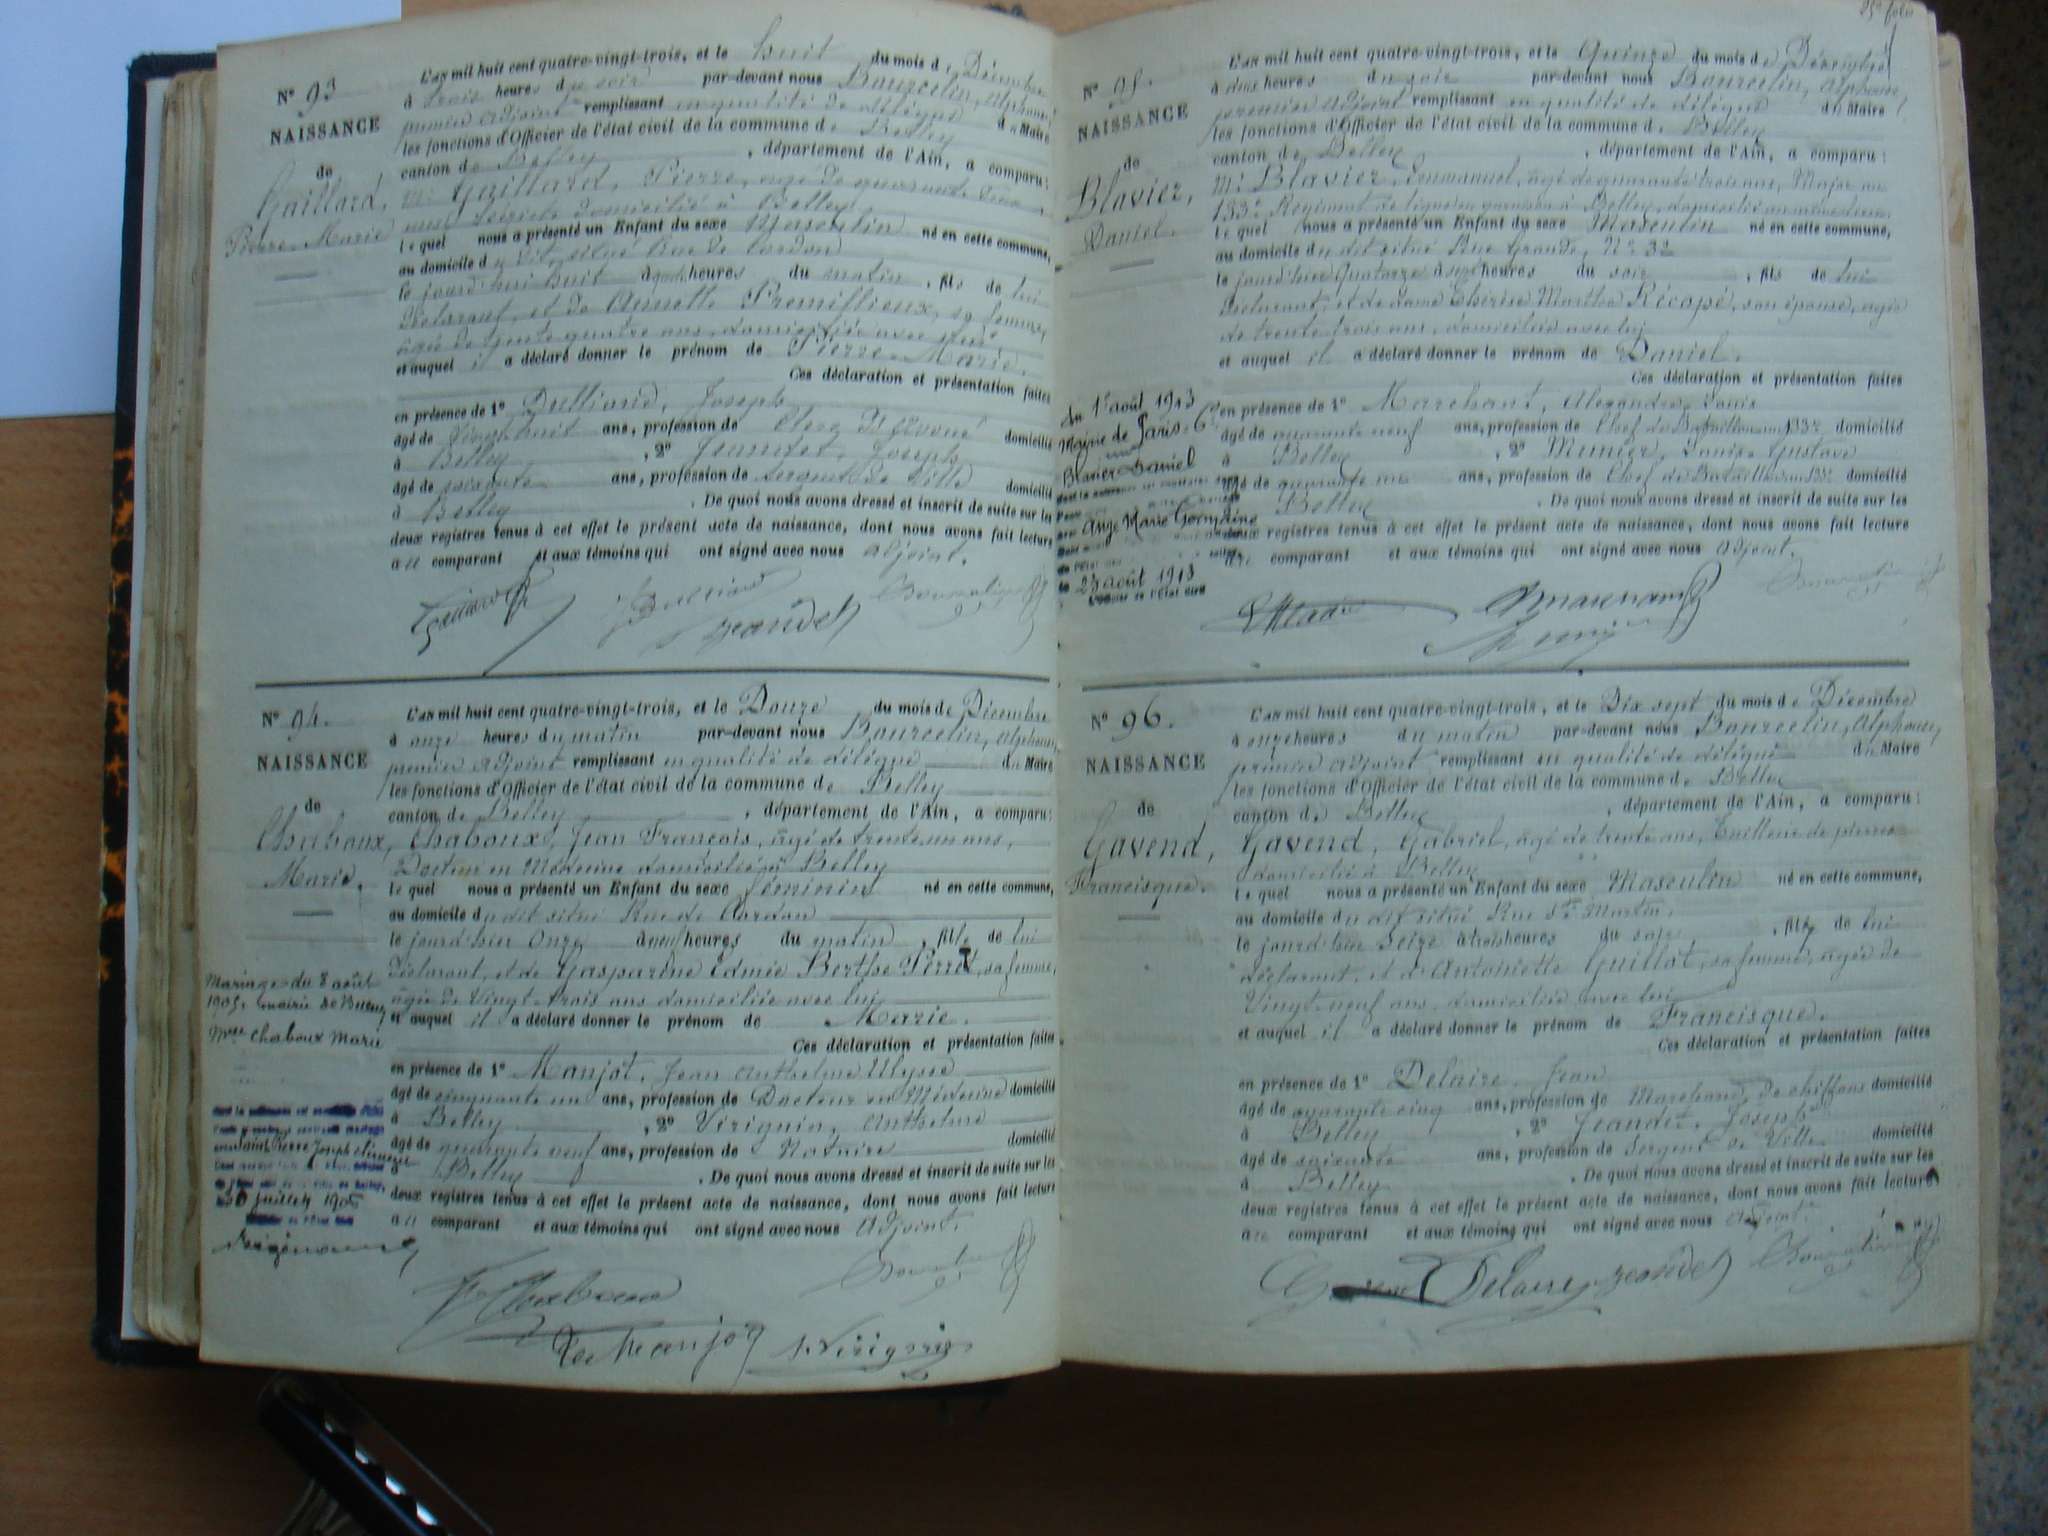 Nº 93
NAISSANCE
de
Gaillard,
Pierre-Marie
L'an mil huit cent quatre-vingt-trois, et le huit du mois de Décembre
à trois heures du soir par-devant nous Bourcelin, Alphonse,
premier adjoint remplissant en qualité de délégué du Maire
les fonctions d'Officier de l'état civil de la commune de Belley
canton de Belley, département de l'Ain, a comparu:
Mr Gaillard, Pierre, âgé de quarante deux
domicilié à Belley
lequel nous a présenté un Enfant du sexe Masculin né en cette commune,
au domicile du dit, situé Rue de Cordon
le jourd'hui huit à heures du matin, fils de lui
déclarant, et de Annette Premillieux, sa femme,
âgée de trente quatre ans, domiciliée avec
et auquel il a déclaré donner le prénom de Pierre-Marie.
Ces déclaration et présentation faites
en présence de 1º Dulliand, Joseph
âgé de vingt huit ans, profession de Clerc d'avoué domicilié
à Belley, 2º Jeandet, Joseph
âgé de soixante ans, profession de sergent de Ville domicilié
à Belley. De quoi nous avons dressé et inscrit de suite sur les
deux registres tenus à cet effet le présent acte de naissance, dont nous avons fait lecture
au comparant et aux témoins qui ont signé avec nous adjoint.
Jeandet
Nº 94.
NAISSANCE
de
Chaboux,
Marie.
Mariage du 8 août
1905, mairie de Belley
Mlle Chaboux Marie
Pierre Joseph
juillet 1905
L'an mil huit cent quatre-vingt-trois, et le Douze du mois de Décembre
à onze heures du matin par-devant nous Bourcelin, Alphonse,
premier adjoint remplissant en qualité de délégué du Maire
les fonctions d'Officier de l'état civil de la commune de Belley
canton de Belley, département de l'Ain, a comparu:
Chaboux, Jean François, âgé de trente-un ans,
Docteur en Médecine domicilié à Belley
lequel nous a présenté un Enfant du sexe féminin né en cette commune,
au domicile du dit situé Rue de Cordon
le jourd'hier Onze à neuf heures du matin, fille de lui
déclarant, et de Gasparine Edmée Berthe Perret, sa femme,
âgée de Vingt-trois ans domiciliée avec lui
et auquel il a déclaré donner le prénom de Marie.
Ces déclaration et présentation faites
en présence de 1º Manjot, Jean Anthelme Ulysse
âgé de cinquante un ans, profession de Docteur en Médecine domicilié
à Belley, 2º Virignin, Anthelme
âgé de quarante neuf ans, profession de Notaire domicilié
à Belley. De quoi nous avons dressé et inscrit de suite sur les
deux registres tenus à cet effet le présent acte de naissance, dont nous avons fait lecture
au comparant et aux témoins qui ont signé avec nous adjoint.
Chaboux
Manjot
Virignin
Nº 95.
NAISSANCE
de
Blavier,
Daniel.
du 1er août 1913
Mairie de Paris-6e
Blavier Daniel
Ange Marie Germaine
23 août 1913
L'an mil huit cent quatre-vingt-trois, et le Quinze du mois de Décembre
à heures du soir par-devant nous Bourcelin, Alphonse,
premier adjoint remplissant en qualité de délégué du Maire
les fonctions d'Officier de l'état civil de la commune de Belley
canton de Belley, département de l'Ain, a comparu:
Mr Blavier, Emmanuel, âgé de quarante trois ans, Major au
133e Régiment de ligne en garnison à Belley, domicilié au même lieu
lequel nous a présenté un Enfant du sexe Masculin né en cette commune,
au domicile du dit situé Rue Grande, Nº 32
le jourd'hier Quatorze à heures du soir, fils de lui
déclarant, et de dame Thérèse Marthe Récopé, son épouse, âgée
de trente trois ans, domiciliée avec lui
et auquel il a déclaré donner le prénom de Daniel.
Ces déclaration et présentation faites
en présence de 1º Marchant, Alexandre Louis
âgé de quarante neuf ans, profession de Chef de Bataillon au 133e domicilié
à Belley, 2º Munier, Louis Gustave
âgé de quarante ans, profession de Chef de Bataillon au 133e domicilié
Belley. De quoi nous avons dressé et inscrit de suite sur les
deux registres tenus à cet effet le présent acte de naissance, dont nous avons fait lecture
au comparant et aux témoins qui ont signé avec nous adjoint.
Nº 96.
NAISSANCE
de
Gavend,
Francisque.
L'an mil huit cent quatre-vingt-trois, et le Dix sept du mois de Décembre
à onze heures du matin par-devant nous Bourcelin, Alphonse,
premier adjoint remplissant en qualité de délégué du Maire
les fonctions d'Officier de l'état civil de la commune de Belley
canton de Belley, département de l'Ain, a comparu:
Gavend, Gabriel, âgé de trente ans, Tailleur de pierres
domicilié à Belley
lequel nous a présenté un Enfant du sexe Masculin né en cette commune,
au domicile du dit situé Rue St Martin,
le jourd'hier seize à trois heures du soir, fils de lui
déclarant, et d'Antoinette Guillot, sa femme, âgée de
Vingt-neuf ans, domiciliée avec lui
et auquel il a déclaré donner le prénom de Francisque.
Ces déclaration et présentation faites
en présence de 1º Delaire, Jean
âgé de quarante cinq ans, profession de Marchand de chiffons domicilié
à Belley, 2º Jeandet, Joseph
âgé de soixante ans, profession de Sergent de Ville domicilié
à Belley. De quoi nous avons dressé et inscrit de suite sur les
deux registres tenus à cet effet le présent acte de naissance, dont nous avons fait lecture
au comparant et aux témoins qui ont signé avec nous adjoint.
Delaire Jeandet